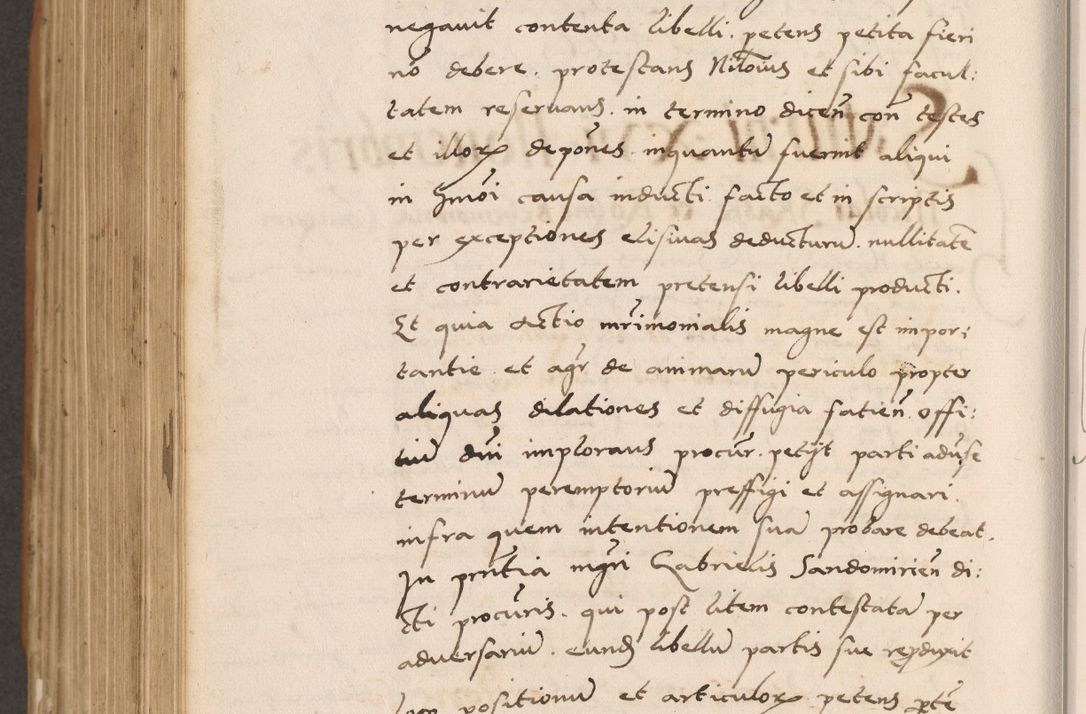 negavit contenta libelli. petens petita fieri
nō debere. protestans Nihilominus et sibi facul:
tatem reservans. in termino dicen̄ con̄ testes
et illorꝝ depōnes. inquantū fuerint aliqui
in hmōi causa inducti. facto et in scriptis
per exceptiones elisivas deducturū. nullitatē
et contrarietatem pretensi libelli producti.
Et quia actio mr̄imonialis magne est impor:
tantie. et agr̄ de animarū periculo propter
aliquas dilationes et diffugia fatien̄. offi:
tiū dn̄i implorans procur̄. petijt parti adūse
terminū peremptoriū preffigi et assignari.
infra quem intentionem suā probare debeat.
In pn̄tia mgr̄i Gabrielis Sandomirien̄ di:
cti procur̄is. qui post litem contestatā per
adversariū. eundē libellū partis sue reproduxit
loco positionū et articulorꝝ. petens p̱tē